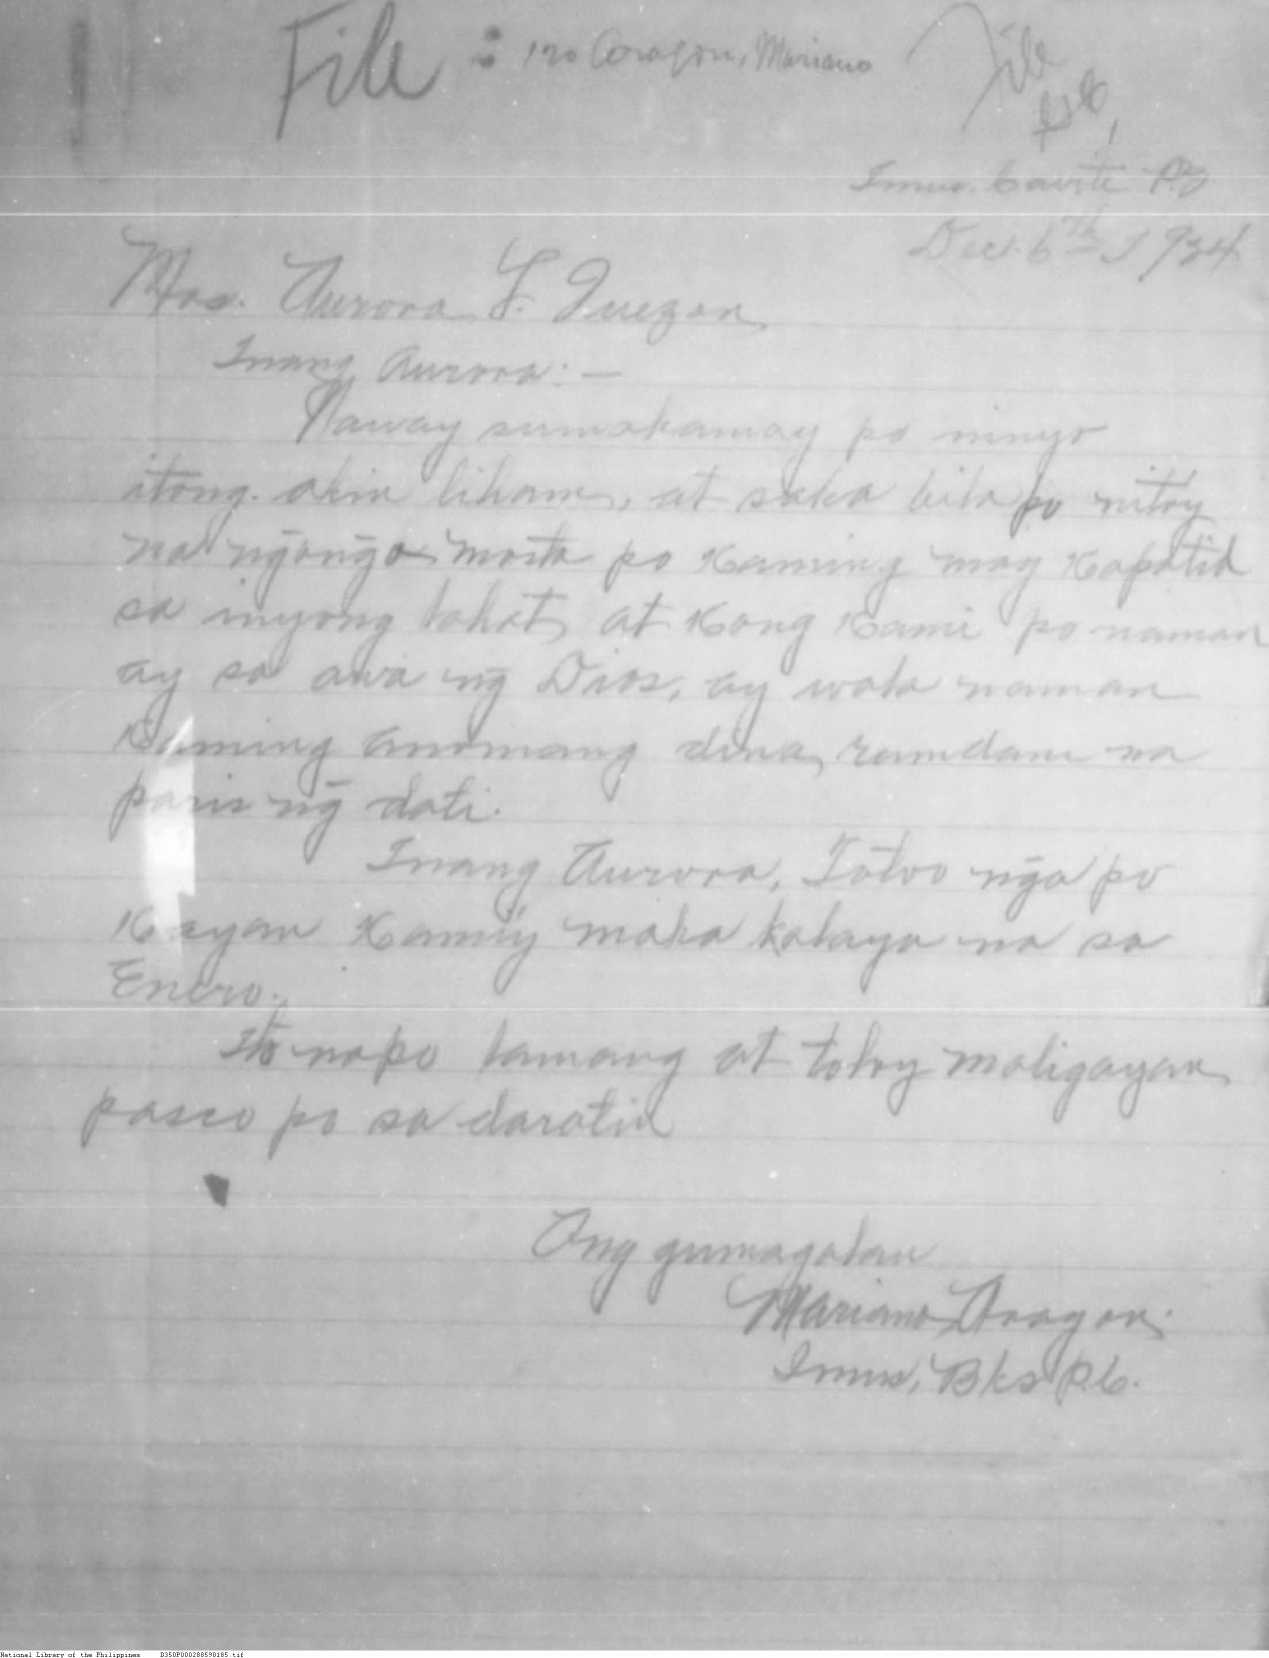 File : Aragon, Mariano
File
Imus. Cavite P.I.
Dec. 6th 1934
Mrs. Aurora L. Quezon
Inang Aurora: —
Naway sumakamay po ninyo
itong. akin liham, at saka bilo po nitoy
na ngonga mosta po Kaming mag Kapatid
sa inyong lahat, at Kong Kami po naman
ay sa awa ng Dios, ay wala naman
Kaming anomang dina ramdam na
paris ng dati.
Inang Aurora, Totoo nga po
Kayan Kamiy maka kalaya na sa
Enero.
Ito napo lamang at toloy maligayan
pasco po sa daratin
Ang gumagalan
Mariano Aragon.
Imus, Bks P.C.
National Library of the Philippines D350P000288590185.tif